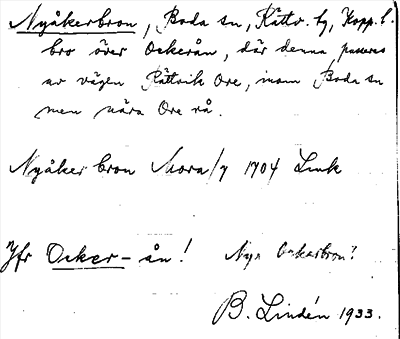 Nyåkerbron, Boda sn, Rättv. tg, Kopp. l.
bro över Ockerån, där denna passeras
av vägen Rättvik Ore, inom Boda sn
men nära Ore rå.
Nyåker bron Mora/7 1704 Link
Jfr Ocker-ån! Nya Ockerbron?
B. Lindén 1933.